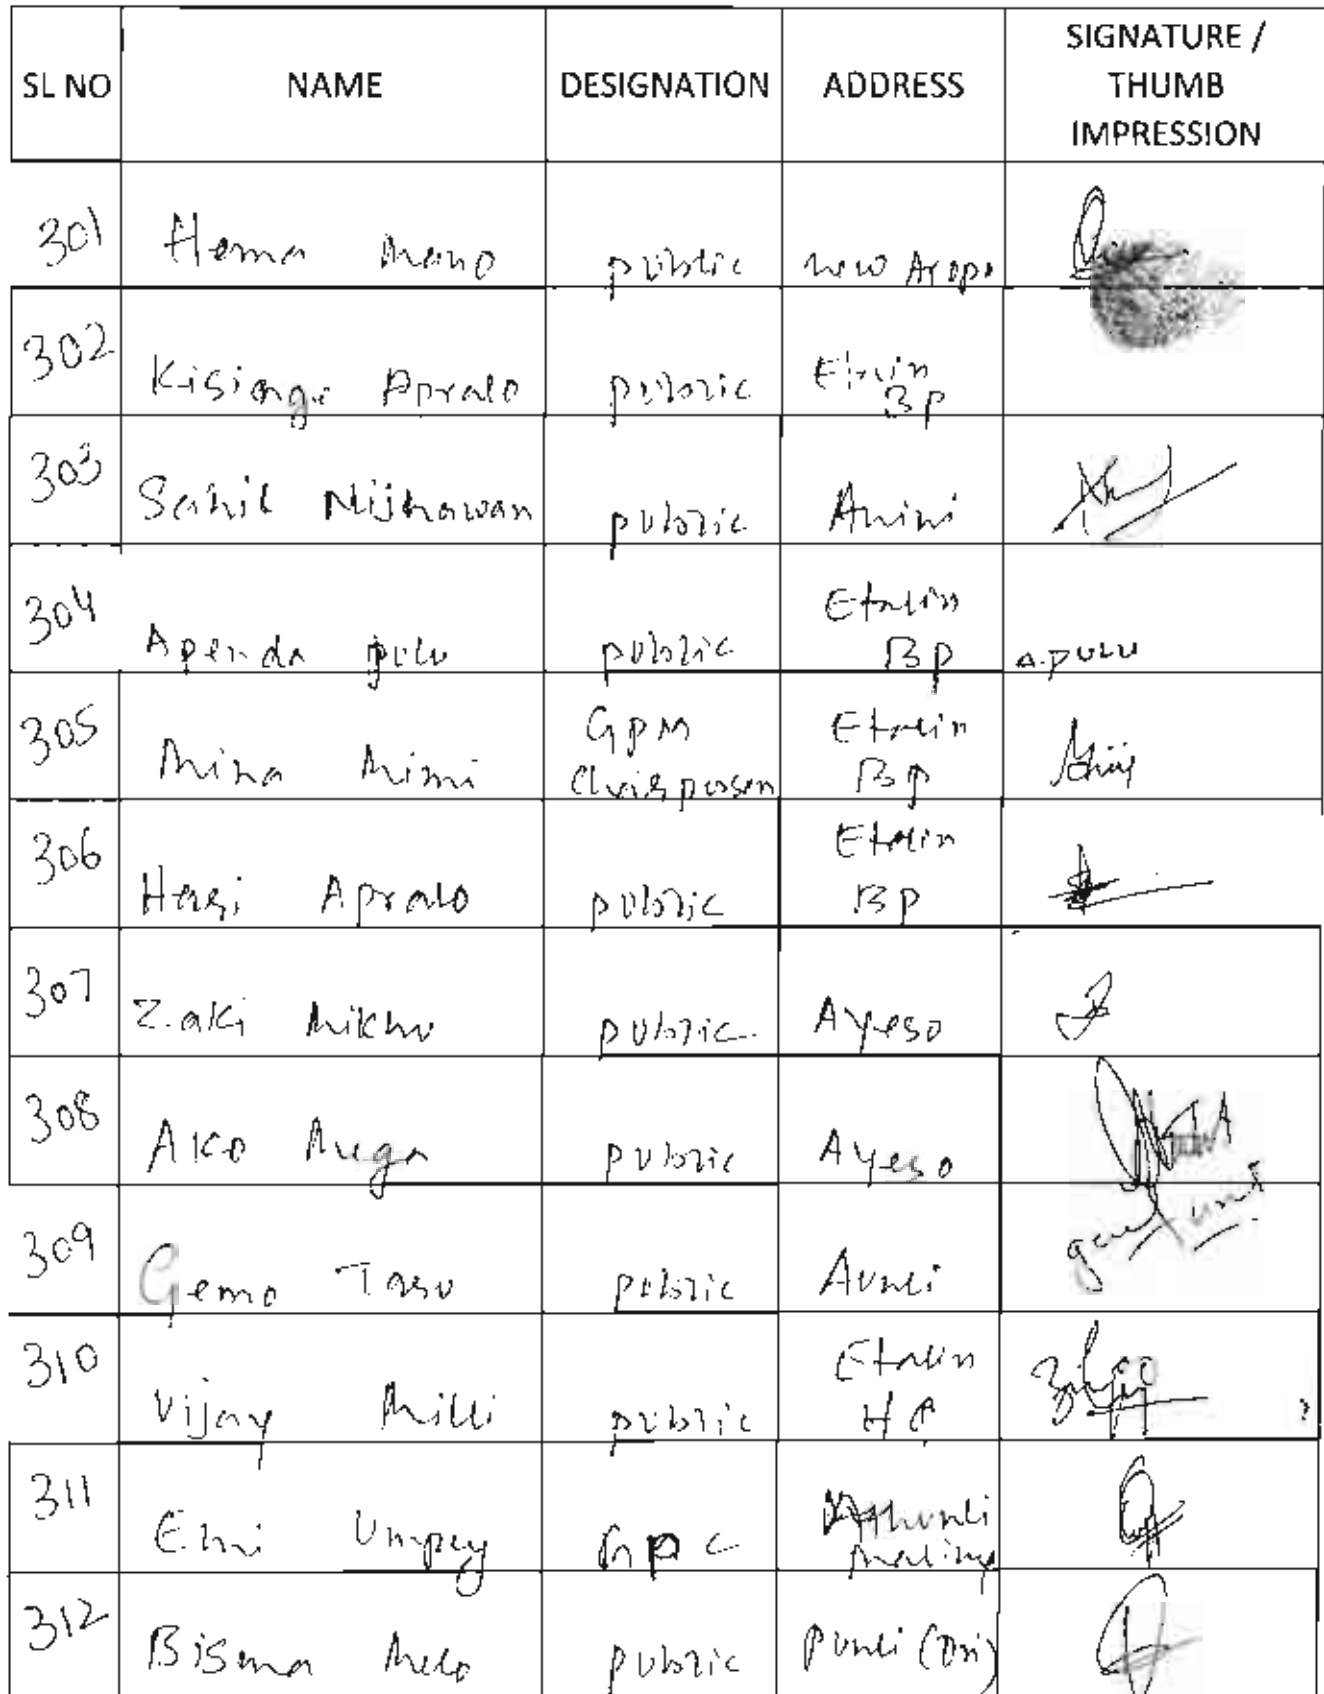 SL NO NAME DESIGNATION ADDRESS SIGNATURE / THUMB IMPRESSION
301 Hema Meno public new Aropo
302 Kisinge Apralo public Etalin BP
303 Sahil Nijhawan public Anini
304 Apenda pulu public Etalin BP A.PULU
305 Mina Mimi GPM Chairperson Etalin BP
306 Hasi Apralo public Etalin BP
307 Zaki Mikhu public Ayeso
308 Ako Mega public Ayeso
309 Gemo Taso public Avnli
310 Vijay Milli public Etalin HQ
311 Emi Umpey GPC Maling
312 Bisma Melo public Punli (Dri)